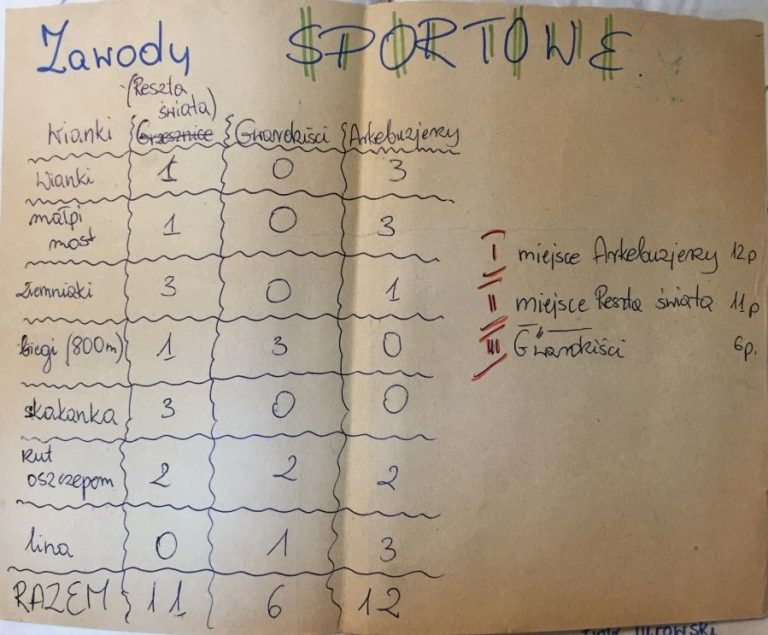 Zawody SPORTOWE
(Reszta
świata)
Wianki Grzesznice Gwardkiści Arkebuzjerzy
Wianki 1 0 3
małpi
most 1 0 3
ziemniaki 3 0 1
biegi (800m) 1 3 0
skakanka 3 0 0
Rzut
oszczepem 2 2 2
lina 0 1 3
RAZEM 11 6 12
I miejsce Arkebuzjerzy 12p
II miejsce Reszta świata 11p
III —"— Gwardkiści 6p.